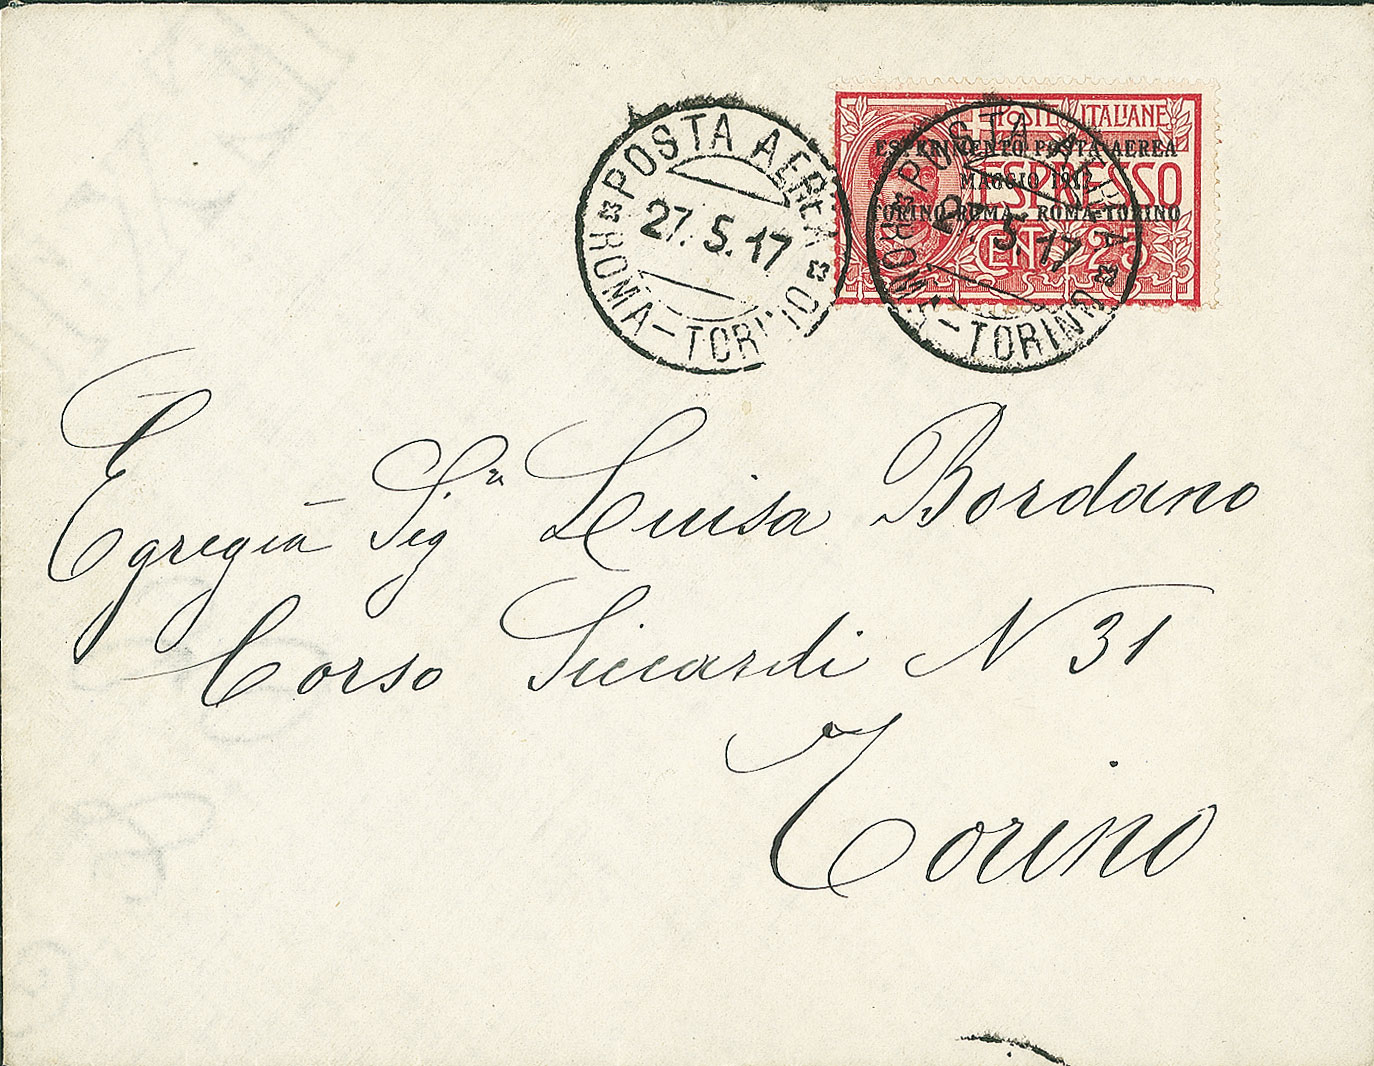 POSTA AEREA
27.5.17
ROMA-TORINO
POSTE ITALIANE
ESPERIMENTO POSTA AEREA
MAGGIO 1917
TORINO-ROMA · ROMA-TORINO
ESPRESSO
CENT 25
POSTA AEREA
27.5.17
ROMA-TORINO
Egregia Sigª Luisa Bordano
Corso Siccardi N 31
Torino